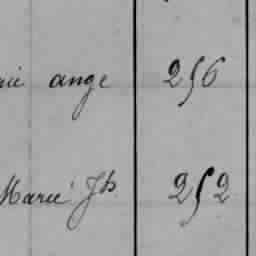 ange 256
Marie Jh 252